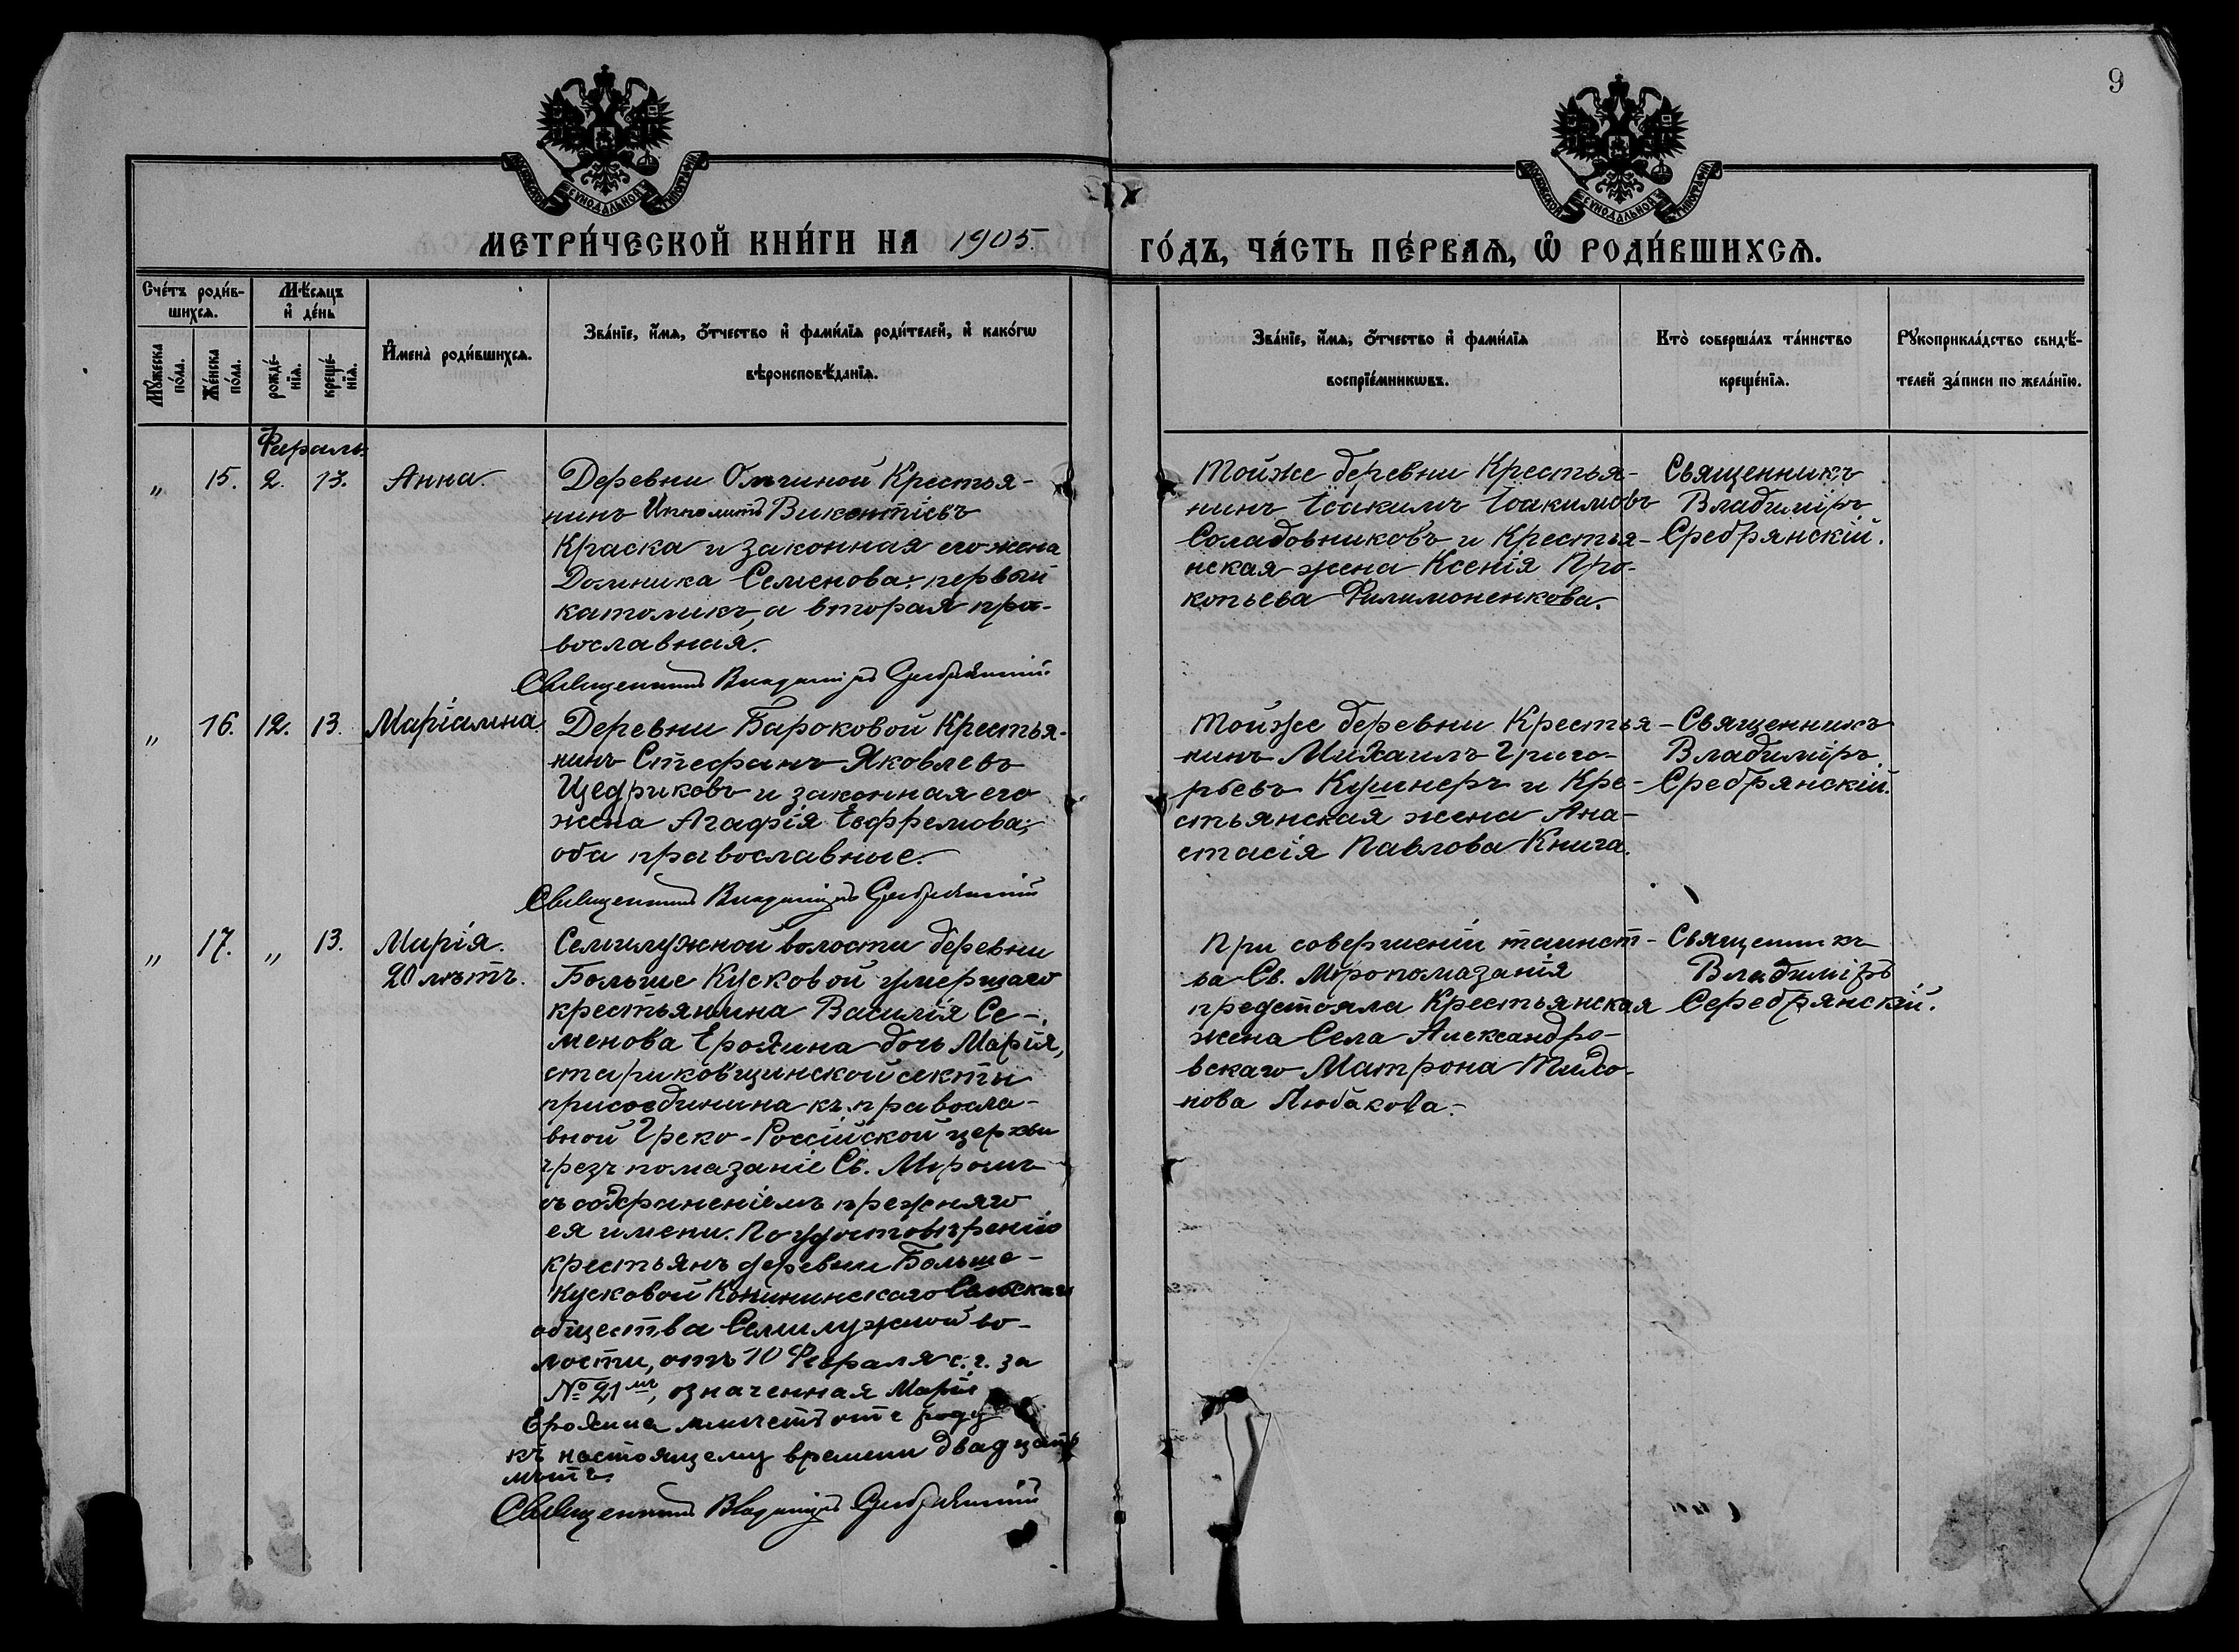 9
МОСКОВСКОЙ СѴНОДАЛЬНОЙ ТИПОГРАФІИ
МОСКОВСКОЙ СѴНОДАЛЬНОЙ ТИПОГРАФІИ
МЕТРИ́ЧЕСКОЙ КНИ́ГИ НА 1905.
ГО́ДЪ, ЧА́СТЬ ПЕ́РВАѦ, Ѽ РОДИ́ВШИХСѦ.
Сче́тъ роди́в-
шихсѧ.
Мꙋжеска
по́ла.
Же́нска
по́ла.
Мѣ́сѧцъ
и҆ де́нь
рожде́-
нїѧ.
креще́-
нїѧ.
И҆мена̀ роди́вшихсѧ.
Зва́нїе, и҆́мѧ, ѻ҆́тчество и҆ фами́лїѧ роди́телей, и҆ како́гѡ
вѣроисповѣ́данїѧ.
Зва́нїе, и҆́мѧ, ѻ҆́тчество и҆ фами́лїѧ
воспрїе́мникѡвъ.
Кто̀ соверша́лъ та́инство
креще́нїѧ.
Рꙋкоприкла́дство свидѣ́-
телей за́писи по жела́нїю.
Февраль.
„ 15. 2. 13. Анна.
Деревни Омчиной Крестья-
нинъ Ипполитъ Викентіевъ
Краска и законная его жена
Домника Семенова: первый
католикъ, а вторая пра-
вославная.
Священникъ Владиміръ Сребрянскій
Тойже деревни Крестья-
нинъ Іоакимъ Іоакимовъ
Соладовниковъ и Крестья-
нская жена Ксенія Про-
копьева Филимоненкова.
Священникъ
Владиміръ
Сребрянскій.
„ 16. 12. 13. Маріамна.
Деревни Бароковой Крестья-
нинъ Стефанъ Яковлевъ
Щедриковъ и законная его
жена Агафія Евфремова;
оба православные.
Священникъ Владиміръ Сребрянскій
Тойже деревни Крестья-
нинъ Михаилъ Григо-
рьевъ Кушнеръ и Кре-
стьянская жена Ана-
стасія Павлова Книга.
Священникъ
Владиміръ
Сребрянскій.
„ 17. „ 13. Марія.
20 лѣтъ.
Семилужной волости деревни
Больше Кусковой умершаго
крестьянина Василія Се-
менова Ерохина дочь Марія,
стариковщинской секты
присоединина къ правосла-
вной Греко-Россійской церкви
чрезъ помазаніе Св. Муромъ
съ сохраненіемъ прежняго
ея имени. По удостовѣренію
крестьянъ деревни Больше-
Кусковой Конининскаго Сельскаго
общества Семилужной во-
лости, отъ 10 Февраля с. г. за
№ 21мъ, означенная Марія
Ерохина имѣетъ отъ роду
къ настоящему времени двадцать
лѣтъ.
Священникъ Владиміръ Сребрянскій
При совершеніи таинст-
ва Св. Муропомазанія
предстояла Крестьянская
жена Села Александро-
вскаго Матрона Тихо-
нова Любакова.
Священникъ
Владиміръ
Серебрянскій.